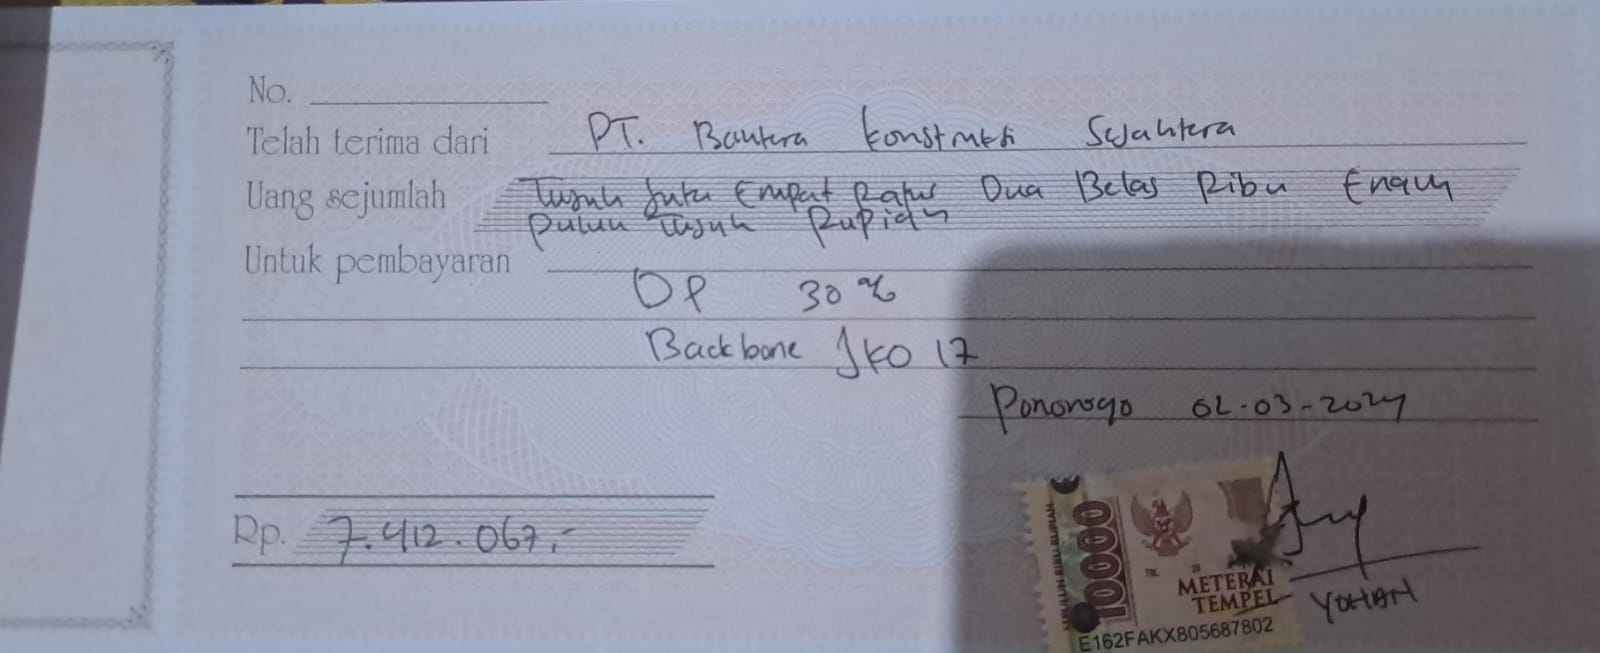 No.
Telah terima dari PT. Bautera Konstruksi Sejahtera
Uang sejumlah Tujuh Juta Empat Ratus Dua Belas Ribu Enam
Puluh Tujuh Rupiah
Untuk pembayaran
DP 30 %
Backbone JKO 17
Ponorogo 02-03-2024
Rp. 7.412.067,-
SEPULUH RIBU RUPIAH
10000
TGL. 20
METERAI
TEMPEL
YOHAN
E162FAKX805687802